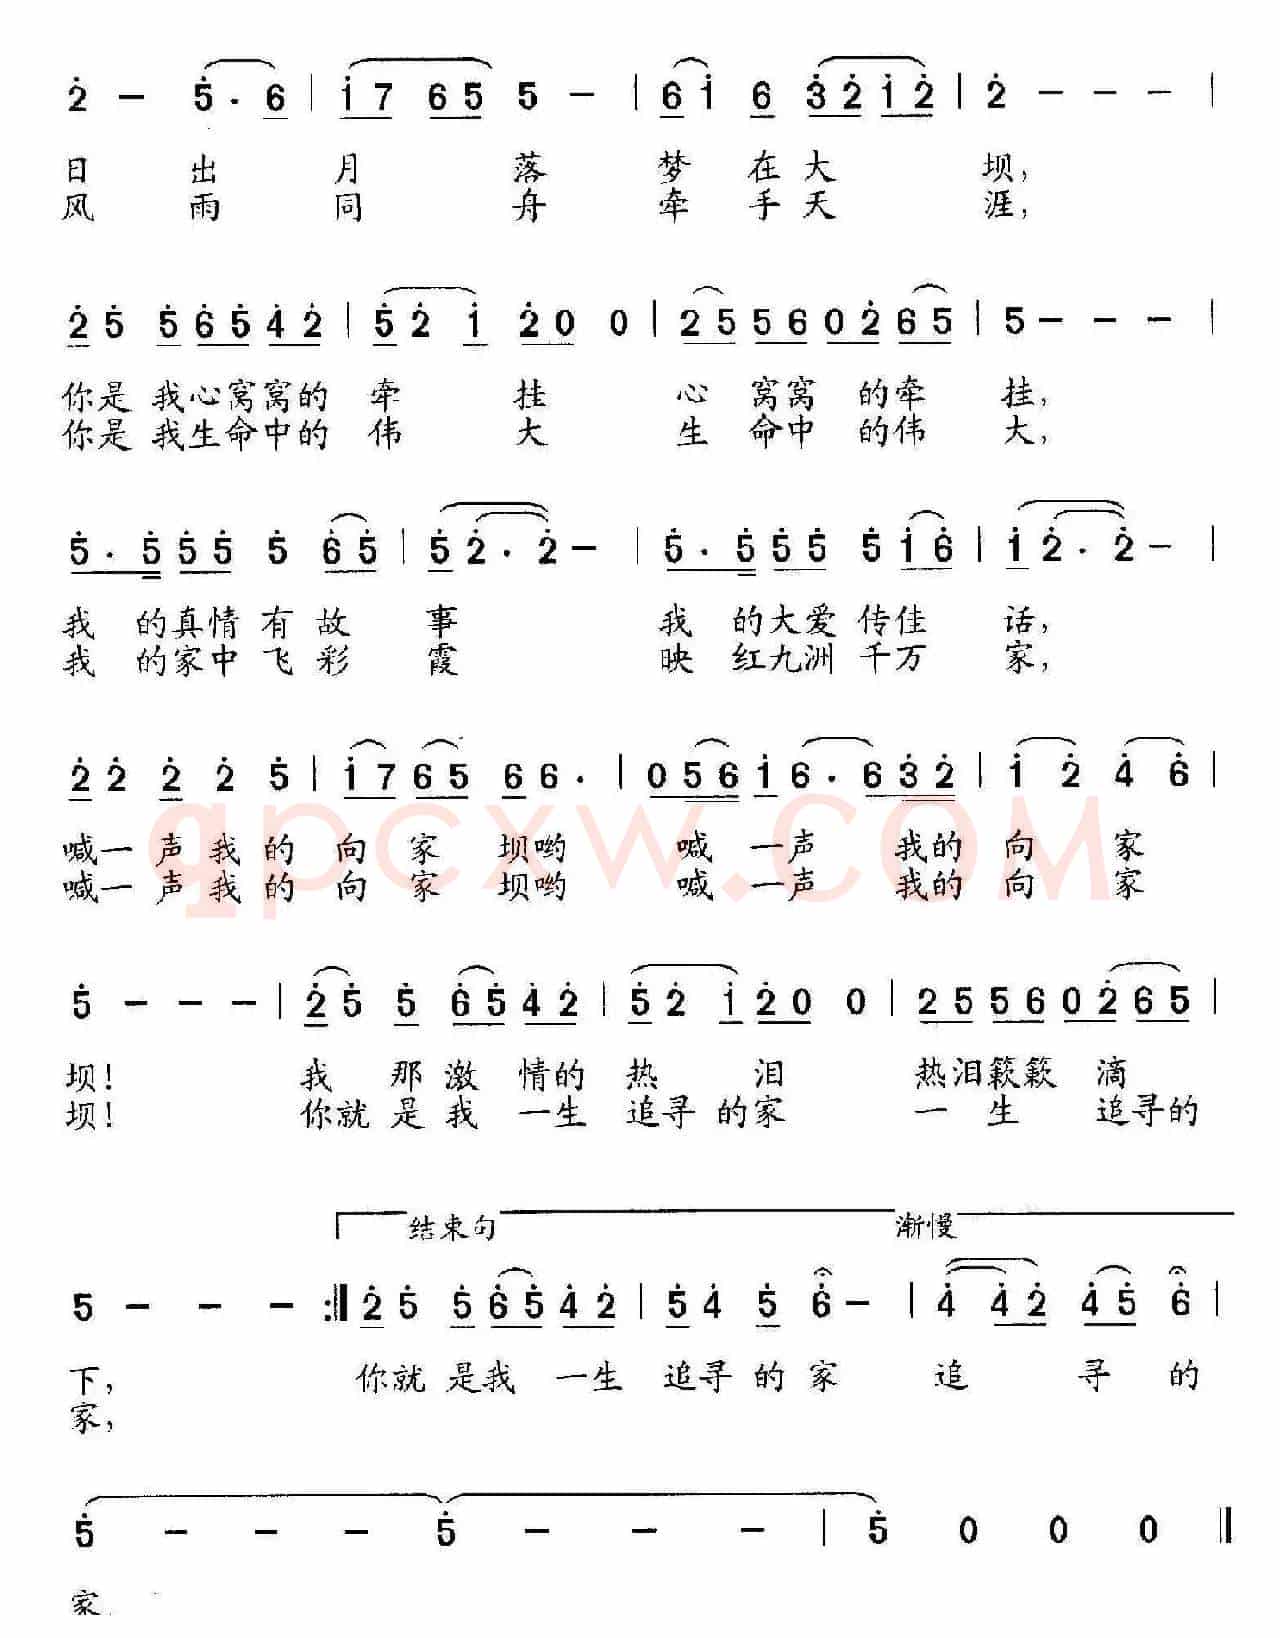 2 – 5 · 6 | 1 7 6 5 5 – | 6 1 6 3 2 1 2 | 2 – – – |
日 出 月 落 梦 在 大 坝,
风 雨 同 舟 牵 手 天 涯,
2 5 5 6 5 4 2 | 5 2 1 2 0 0 | 2 5 5 6 0 2 6 5 | 5 – – – |
你是 我心窝窝的 牵 挂 心 窝窝 的牵 挂,
你是 我生命中的 伟 大 生 命中 的伟 大,
5 · 5 5 5 5 6 5 | 5 2 · 2 – | 5 · 5 5 5 5 1 6 | 1 2 · 2 – |
我 的真情 有 故 事 我 的大爱 传佳 话,
我 的家中 飞 彩 霞 映 红九洲 千万 家,
2 2 2 2 5 | 1 7 6 5 6 6 · | 0 5 6 1 6 · 6 3 2 | 1 2 4 6 |
喊一 声 我 的 向 家 坝哟 喊 一声 我的 向 家
喊一 声 我 的 向 家 坝哟 喊 一声 我的 向 家
qpcxw.com
5 – – – | 2 5 5 6 5 4 2 | 5 2 1 2 0 0 | 2 5 5 6 0 2 6 5 |
坝! 我 那 激 情的 热 泪 热泪簌簌 滴
坝! 你就 是 我 一生 追寻 的家 一 生 追寻的
结束句 渐慢
5 – – – :‖ 2 5 5 6 5 4 2 | 5 4 5 6 – | 4 4 2 4 5 6 |
下, 你就 是我 一生 追寻 的 家 追 寻 的
家,
5 – – – 5 – – – | 5 0 0 0 ‖
家.